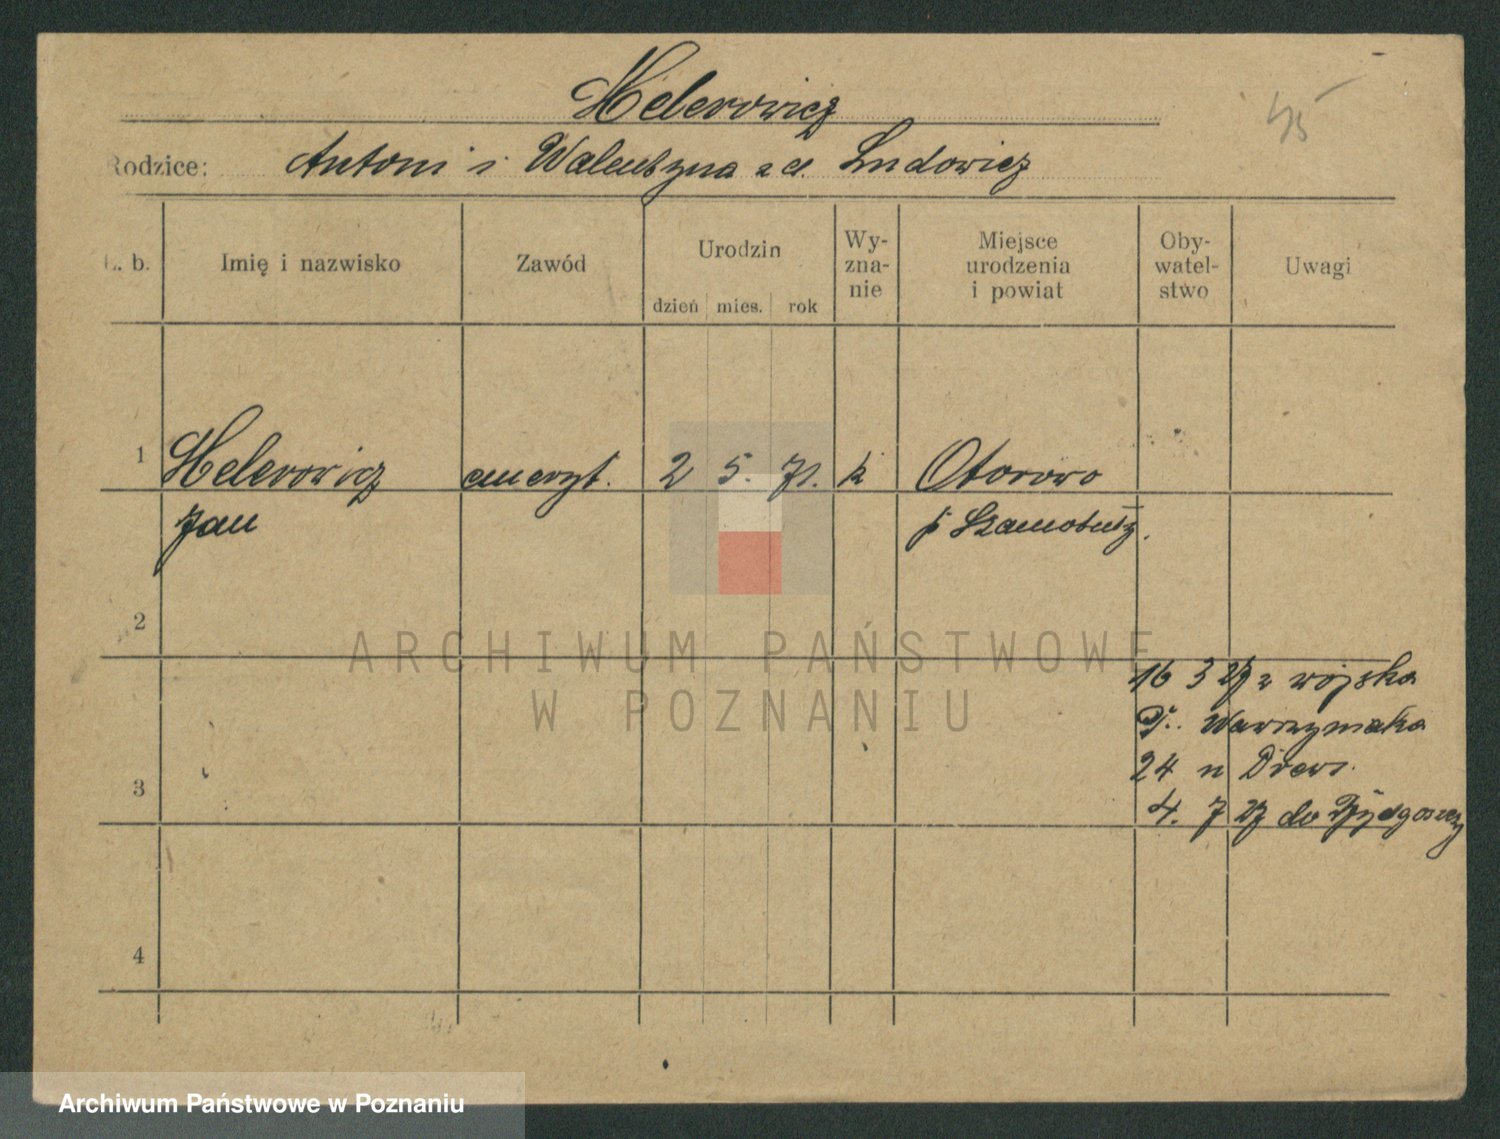 Helerowicz
45
Rodzice: Antoni i Walentyna z d. Ludowicz
L. b. Imię i nazwisko Zawód Urodzin dzień mies. rok Wy-zna-nie Miejsce urodzenia i powiat Oby-watel-stwo Uwagi
1 Helerowicz emeryt. 2 5. 71. k Otorowo
Jan p Szamotuły.
2
ARCHIWUM PAŃSTWOWE
W POZNANIU
16 3 27 z wojska
Wawrzyniaka
3 24 u Drews.
4. 7 27 do Bydgoszczy
4
Archiwum Państwowe w Poznaniu